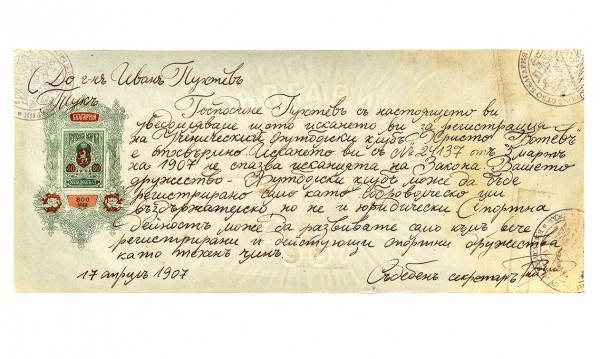 До г-нъ Иванъ Пухтевъ
Тукъ
БЪЛГАРИЯ
3
800
Господине Пухтевъ съ настоящето ви
уведомяваме че искането ви за регистрация
на футболенъ клубъ "Христо Ботевъ"
е отхвърлено. Искането ви съ № 24137 отъ 3 мартъ
на 1907 не спазва исканията на Закона. Вашето
дружество - футболенъ клубъ може да бъде
регистрирано само като
въздържателно, но не и юридически. Спортна
дейность може да развивате само към вече
регистрирани и действующи спортни дружества
като техенъ членъ.
17 април 1907
Съдебенъ секретаръ